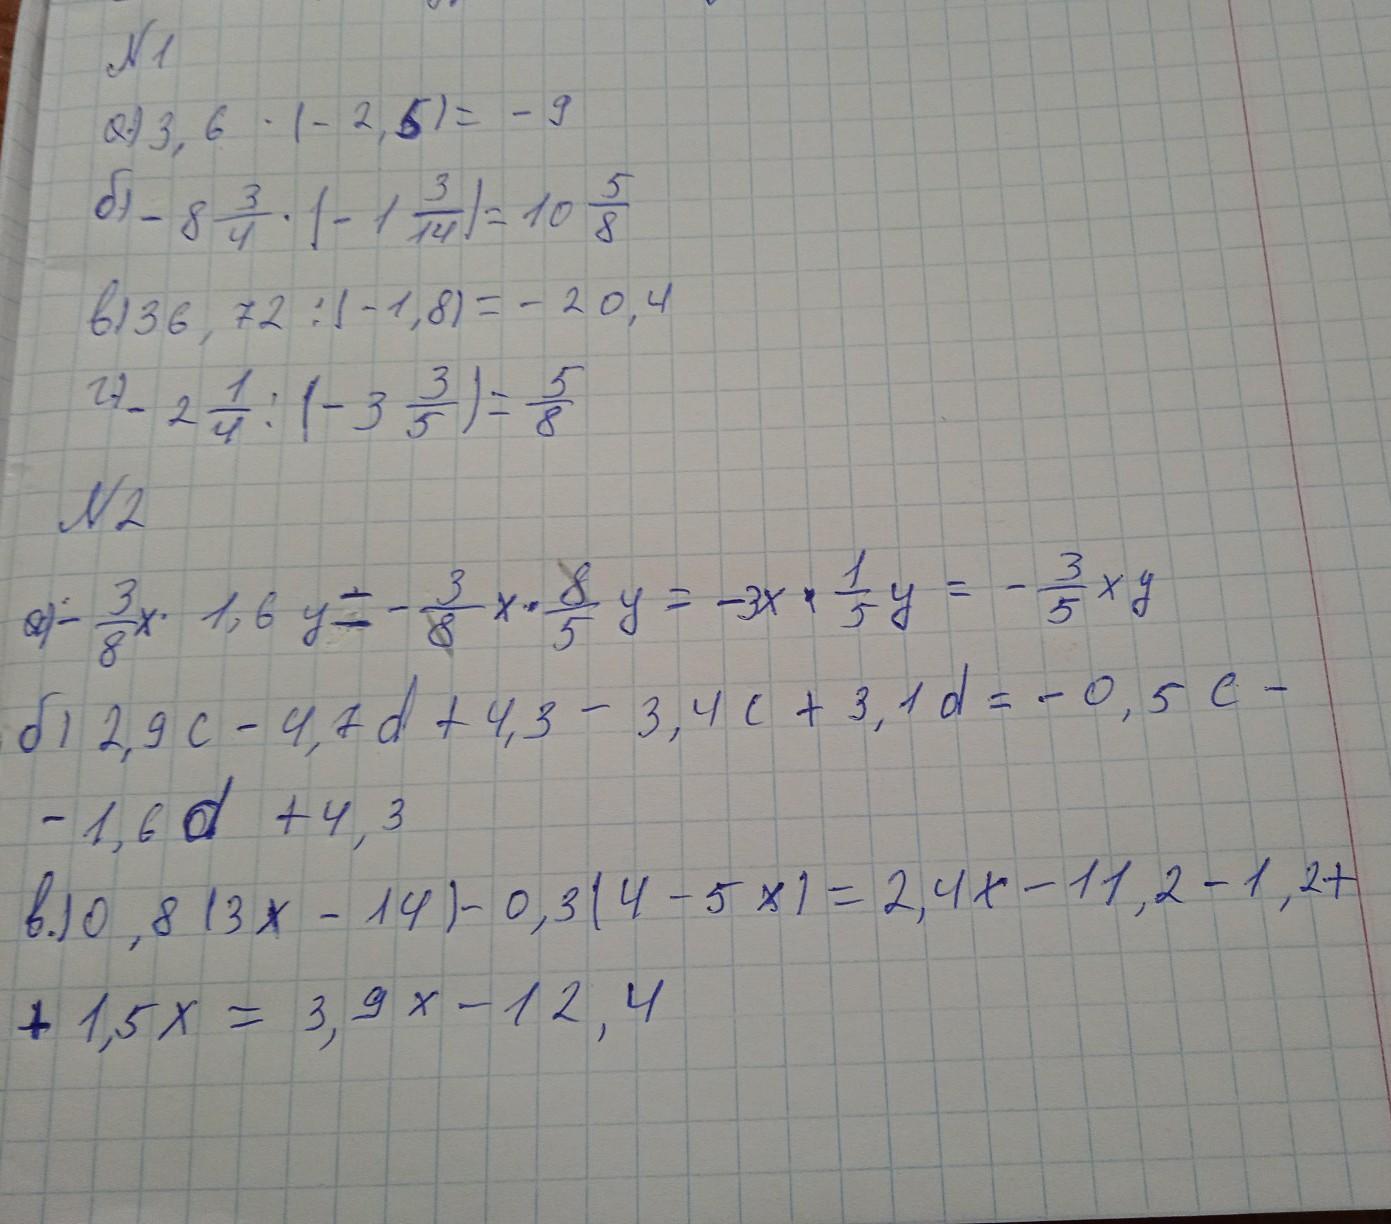 N1
а) 3,6 · (- 2,5) = - 9
б) - 8 3/4 · (- 1 3/14) = 10 5/8
в) 36,72 : (- 1,8) = - 20,4
г) - 2 1/4 : (- 3 3/5) = 5/8
N2
а) - 3/8 x · 1,6 y = - 3/8 x · 8/5 y = -3x · 1/5 y = - 3/5 xy
б) 2,9c - 4,7d + 4,3 - 3,4c + 3,1d = - 0,5c -
- 1,6d + 4,3
в.) 0,8(3x - 14) - 0,3(4 - 5x) = 2,4x - 11,2 - 1,2+
+ 1,5x = 3,9x - 12,4